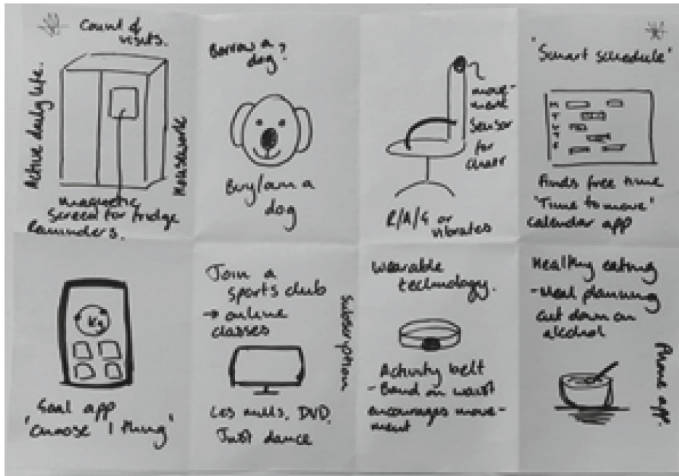 Count of
visits.
Active daily life.
Housework
magnetic
Screen for fridge
Reminders.
Borrow a
dog?
Buy/own a
dog
move-
ment
Sensor
for
chair
R/A/G or
vibrates
'Smart schedule'
M
T
T
F
Finds free time
'Time to move'
calendar app
Kg
Goal app
'choose 1 thing'
Join a
sports club
→ online
classes
Subscription
Les mills, DVD,
Just dance
Wearable
technology.
Activity belt
- Band on waist
encourages move-
ment
Healthy eating
- Meal planning
cut down on
alcohol
Phone app.